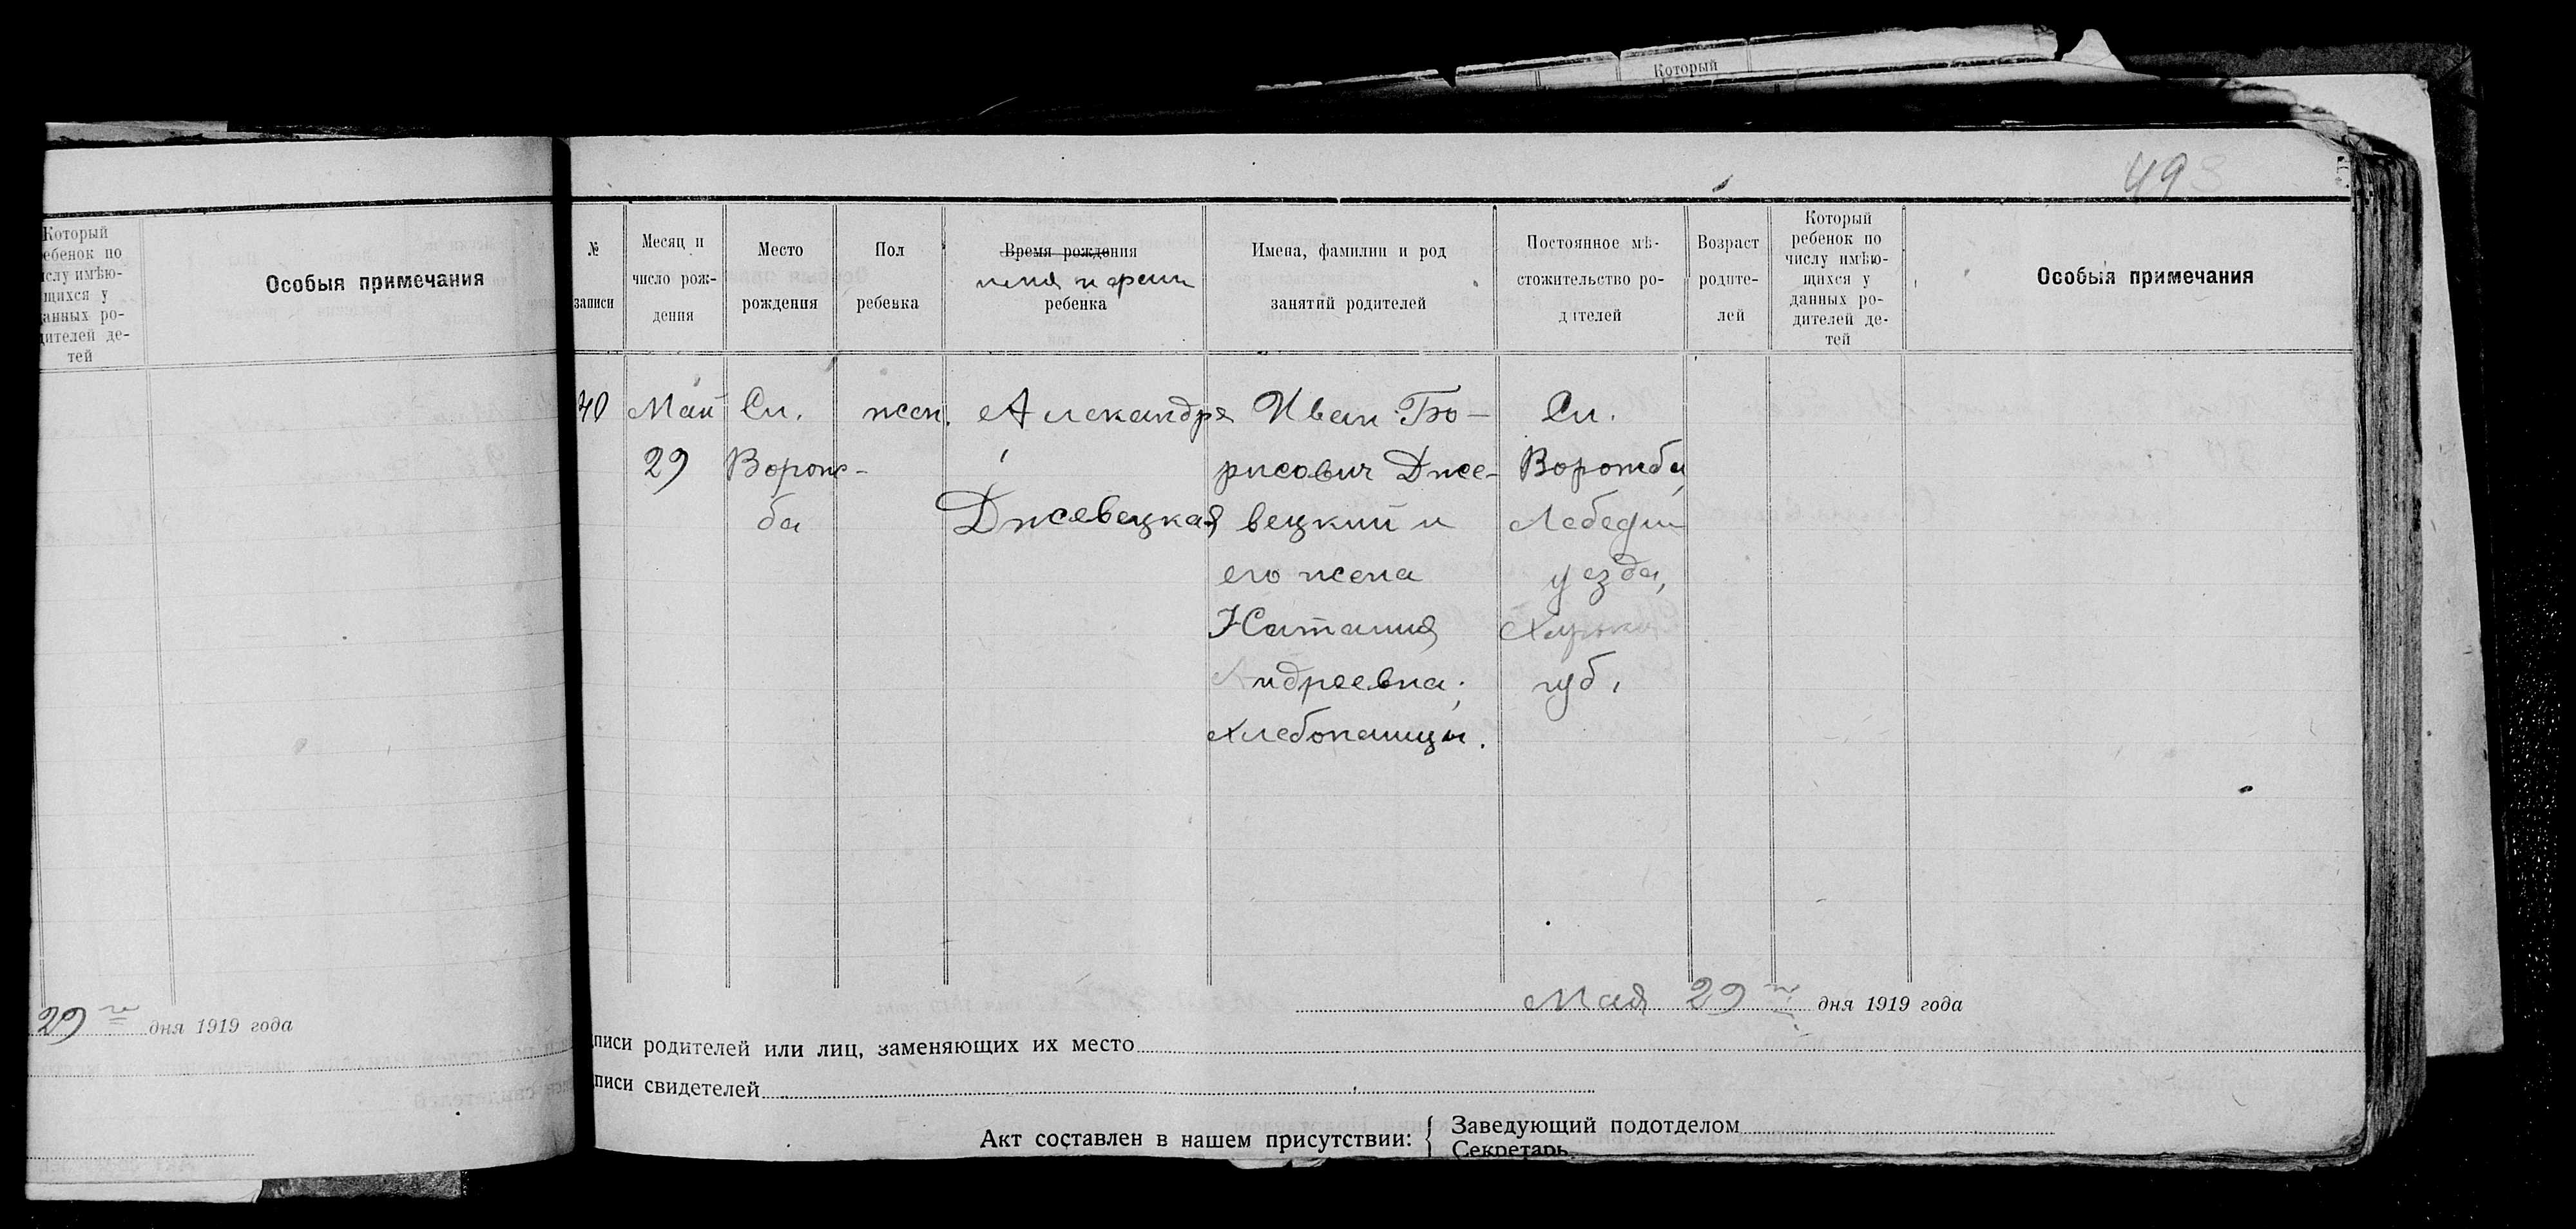 Который
49
Который
ребенок по
числу имѣю-
щихся у
данных ро-
дителей де-
тей
Особыя примечания
29 го дня 1919 года
№
записи
Месяц и
число рож-
дения
Место
рождения
Пол
ребенка
Время рождения
имя и фам
ребенка
Имена, фамилии и род
занятий родителей
Постоянное мѣ-
стожительство ро-
дителей
Возраст
родите-
лей
Который
ребенок по
числу имѣю-
щихся у
данных ро-
дителей де-
тей
Особыя примечания
40
Май
29
Сл.
Ворож-
ба
жен.
Александра
Джевецкая
Иван Бо-
рисович Дже-
вецкий и
его жена
Наталия
Андреевна;
хлебопашцы.
Сл.
Ворожба,
Лебедин
уезда,
Харьков
губ.
Мая 29 го дня 1919 года
писи родителей или лиц, заменяющих их место
писи свидетелей
Акт составлен в нашем присутствии:
Заведующий подотделом
Секретарь